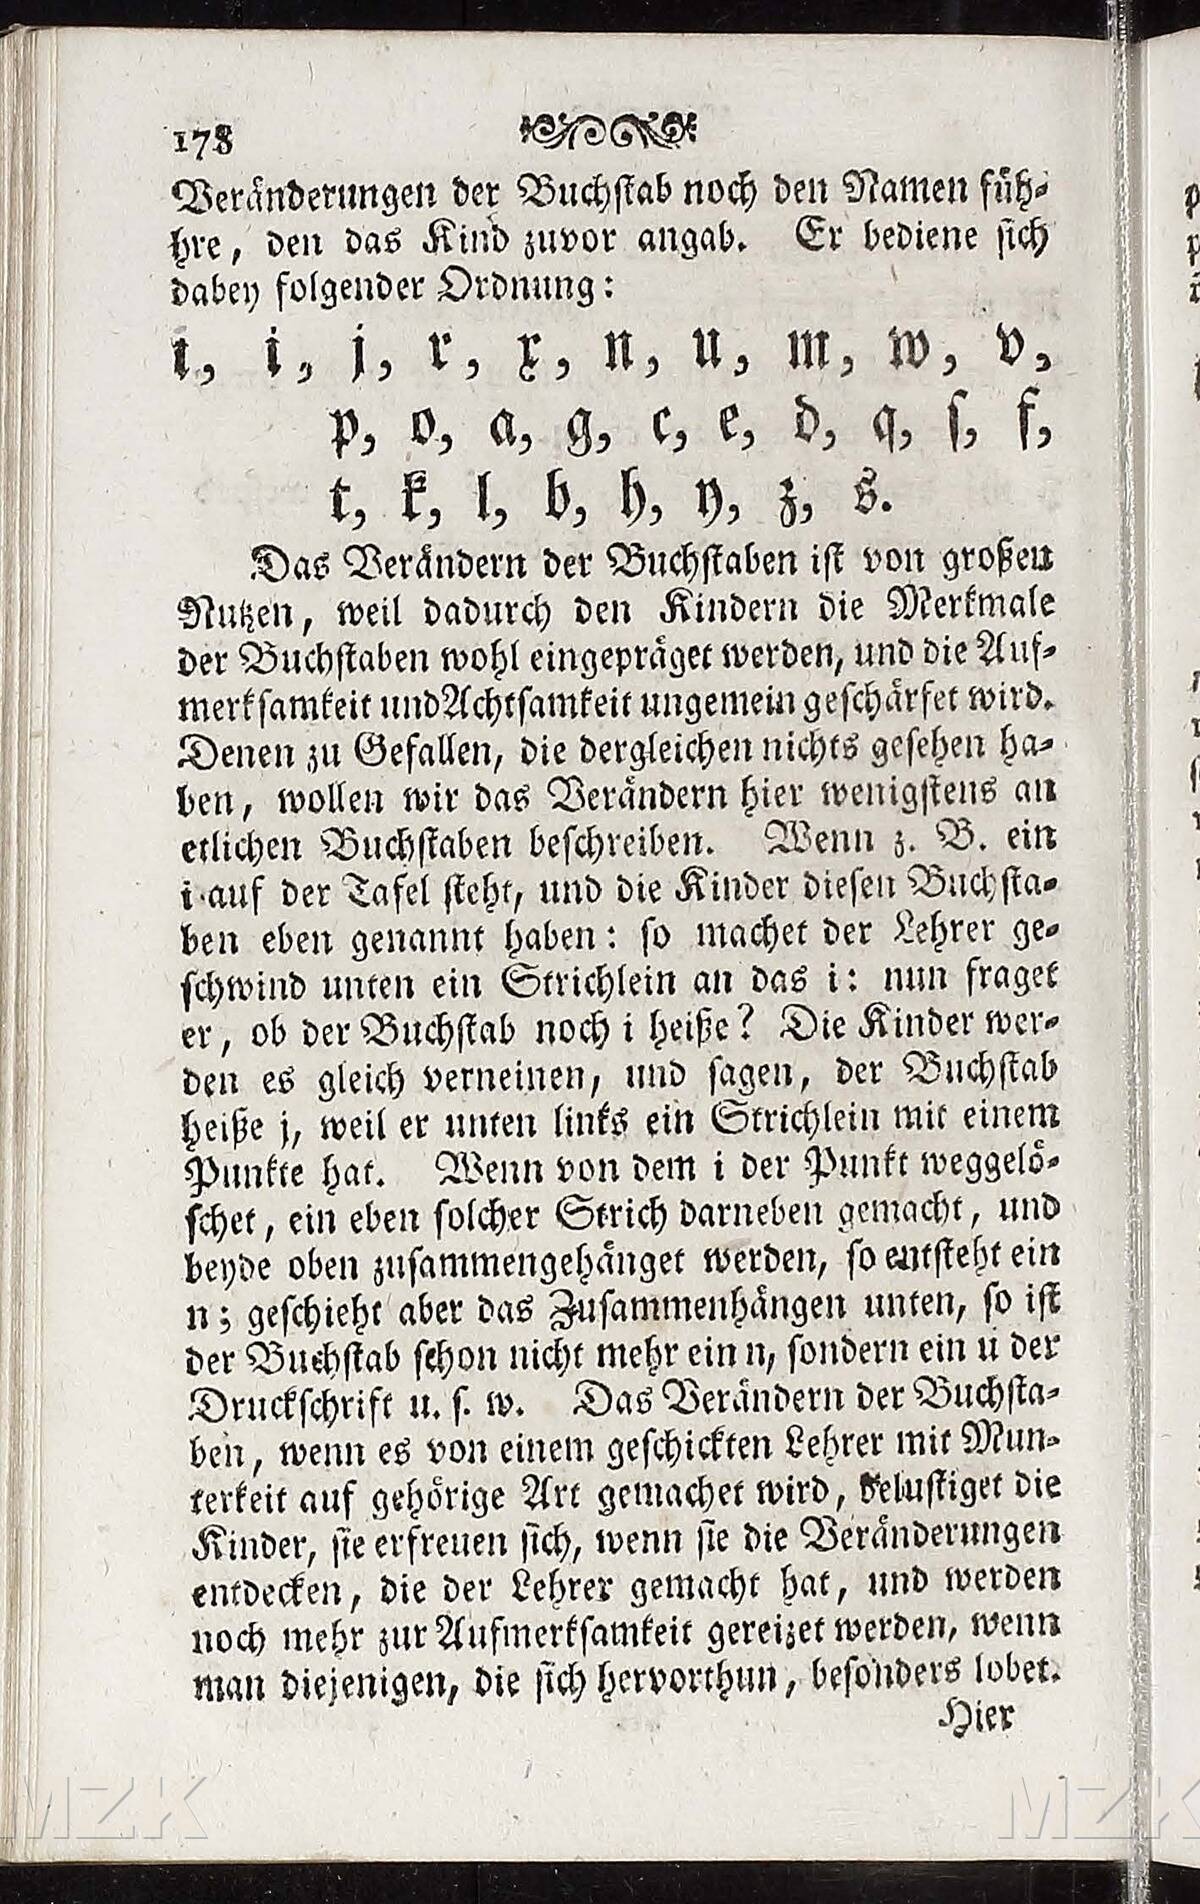 178
Veränderungen der Buchstab noch den Namen füh-
hre, den das Kind zuvor angab. Er bediene sich
dabey folgender Ordnung:
ı, i, j, r, x, n, u, m, w, v,
p, o, a, g, c, e, d, q, ſ, f,
t, k, l, b, h, y, z, s.
Das Verändern der Buchstaben ist von großen
Nutzen, weil dadurch den Kindern die Merkmale
der Buchstaben wohl eingepräget werden, und die Auf-
merksamkeit und Achtsamkeit ungemein geschärfet wird.
Denen zu Gefallen, die dergleichen nichts gesehen ha-
ben, wollen wir das Verändern hier wenigstens an
etlichen Buchstaben beschreiben. Wenn z. B. ein
i auf der Tafel steht, und die Kinder diesen Buchsta-
ben eben genannt haben: so machet der Lehrer ge-
schwind unten ein Strichlein an das i: nun fraget
er, ob der Buchstab noch i heiße? Die Kinder wer-
den es gleich verneinen, und sagen, der Buchstab
heiße j, weil er unten links ein Strichlein mit einem
Punkte hat. Wenn von dem i der Punkt weggelö-
schet, ein eben solcher Strich darneben gemacht, und
beyde oben zusammengehänget werden, so entsteht ein
n; geschieht aber das Zusammenhängen unten, so ist
der Buchstab schon nicht mehr ein n, sondern ein u der
Druckschrift u. s. w. Das Verändern der Buchsta-
ben, wenn es von einem geschickten Lehrer mit Mun-
terkeit auf gehörige Art gemachet wird, belustiget die
Kinder, sie erfreuen sich, wenn sie die Veränderungen
entdecken, die der Lehrer gemacht hat, und werden
noch mehr zur Aufmerksamkeit gereizet werden, wenn
man diejenigen, die sich hervorthun, besonders lobet.
Hier
MZK
MZK